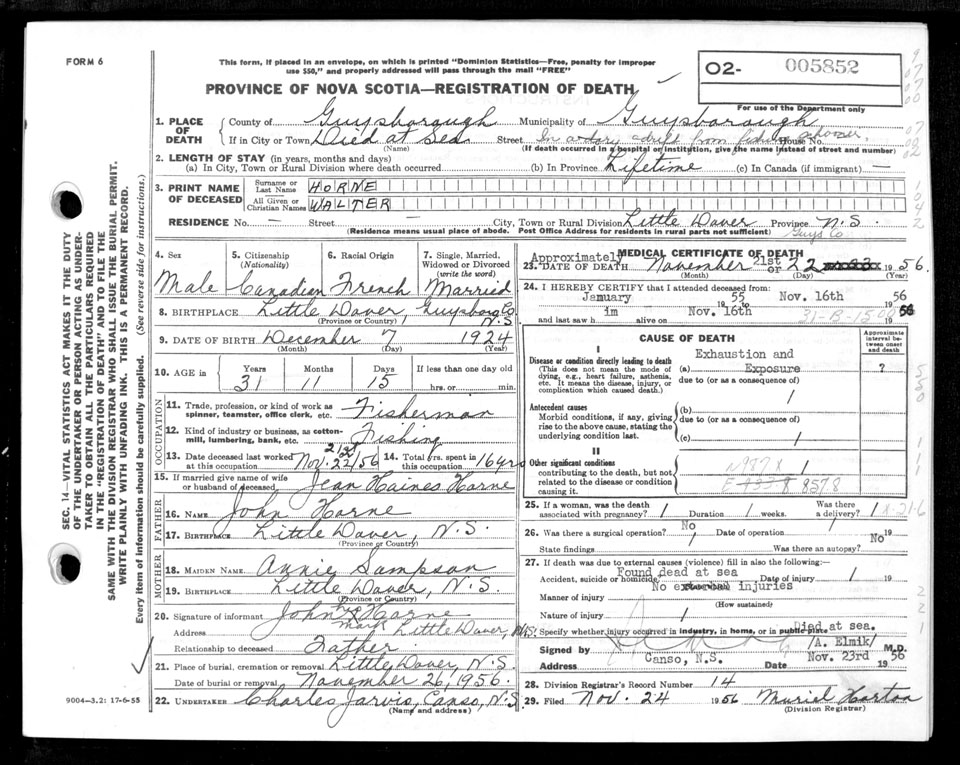 FORM 6
This form, if placed in an envelope, on which is printed "Dominion Statistics—Free, penalty for improper
use $50," and properly addressed will pass through the mail "FREE"
O2- 005852
PROVINCE OF NOVA SCOTIA—REGISTRATION OF DEATH
For use of the Department only
1. PLACE OF DEATH
County of Guysborough Municipality of Guysborough
If in City or Town Died at Sea Street In a dory adrift from fishing schooner House No.
(Name) (If death occurred in a hospital or institution, give the name instead of street and number)
2. LENGTH OF STAY (in years, months and days)
(a) In City, Town or Rural Division where death occurred (b) In Province Lifetime (c) In Canada (if immigrant) —
3. PRINT NAME OF DECEASED
Surname or Last Name HORNE
All Given or Christian Names WALTER
RESIDENCE No. — Street — City, Town or Rural Division Little Dover Province N.S.
(Residence means usual place of abode. Post Office Address for residents in rural parts not sufficient) Guys Co
4. Sex Male
5. Citizenship (Nationality) Canadian
6. Racial Origin French
7. Single, Married, Widowed or Divorced (write the word) Married
8. BIRTHPLACE Little Dover, Guysboro Co N.S
(Province or Country)
9. DATE OF BIRTH December 7 1924
(Month) (Day) (Year)
10. AGE in Years 31 Months 11 Days 15 If less than one day old hrs. or min.
OCCUPATION
11. Trade, profession or kind of work as spinner, teamster, office clerk, etc. Fisherman
12. Kind of industry or business, as cotton-mill, lumbering, bank, etc. Fishing
13. Date deceased last worked at this occupation Nov. 21 or 22/56
14. Total yrs. spent in this occupation 16 yrs
15. If married give name of wife or husband of deceased Jean Haines Horne
FATHER
16. NAME John Horne
17. BIRTHPLACE Little Dover, N.S.
(Province or Country)
MOTHER
18. MAIDEN NAME Annie Sampson
19. BIRTHPLACE Little Dover, N.S.
(Province or Country)
20. Signature of informant John his X mark Horne
Address Little Dover, N.S.
Relationship to deceased Father
21. Place of burial, cremation or removal Little Dover, N.S.
Date of burial or removal November 26, 1956.
22. UNDERTAKER Charles Jarvis, Canso, N.S
(Name and address)
MEDICAL CERTIFICATE OF DEATH
Approximately
23. DATE OF DEATH November 21st or 22 1956.
(Month) (Day) (Year)
24. I HEREBY CERTIFY that I attended deceased from:
January 1955 to Nov. 16th 1956
and last saw him alive on Nov. 16th 1956
CAUSE OF DEATH
Approximate interval between onset and death
I
Disease or condition directly leading to death
(This does not mean the mode of dying, e.g., heart failure, asthenia, etc. It means the disease, injury, or complication which caused death.)
(a) Exhaustion and Exposure ?
due to (or as a consequence of)
Antecedent causes
Morbid conditions, if any, giving rise to the above cause, stating the underlying condition last.
(b) /
due to (or as a consequence of)
(c) /
II
Other significant conditions
contributing to the death, but not related to the disease or condition causing it.
25. If a woman, was the death associated with pregnancy? / Duration / weeks. Was there a delivery? /
26. Was there a surgical operation? No Date of operation 19
State findings / Was there an autopsy? No
27. If death was due to external causes (violence) fill in also the following:—
Accident, suicide or homicide Found dead at sea Date of injury / 19
Manner of injury No external injuries
(How sustained)
Nature of injury /
Specify whether injury occurred in industry, in home, or in public place Died at sea.
Signed by /A. Elmik/ M.D.
Address Canso, N.S. Date Nov. 23rd 1956
28. Division Registrar's Record Number 14
29. Filed Nov. 24 1956 Muriel Horton
(Division Registrar)
SEC. 14—VITAL STATISTICS ACT MAKES IT THE DUTY
OF THE UNDERTAKER OR PERSON ACTING AS UNDER-
TAKER TO OBTAIN ALL THE PARTICULARS REQUIRED
IN THE "REGISTRATION OF DEATH" AND TO FILE THE
SAME WITH THE DIVISION REGISTRAR WHO SHALL ISSUE THE BURIAL PERMIT.
WRITE PLAINLY WITH UNFADING INK. THIS IS A PERMANENT RECORD.
Every item of information should be carefully supplied. (See reverse side for instructions.)
9004—3.2: 17-6-55